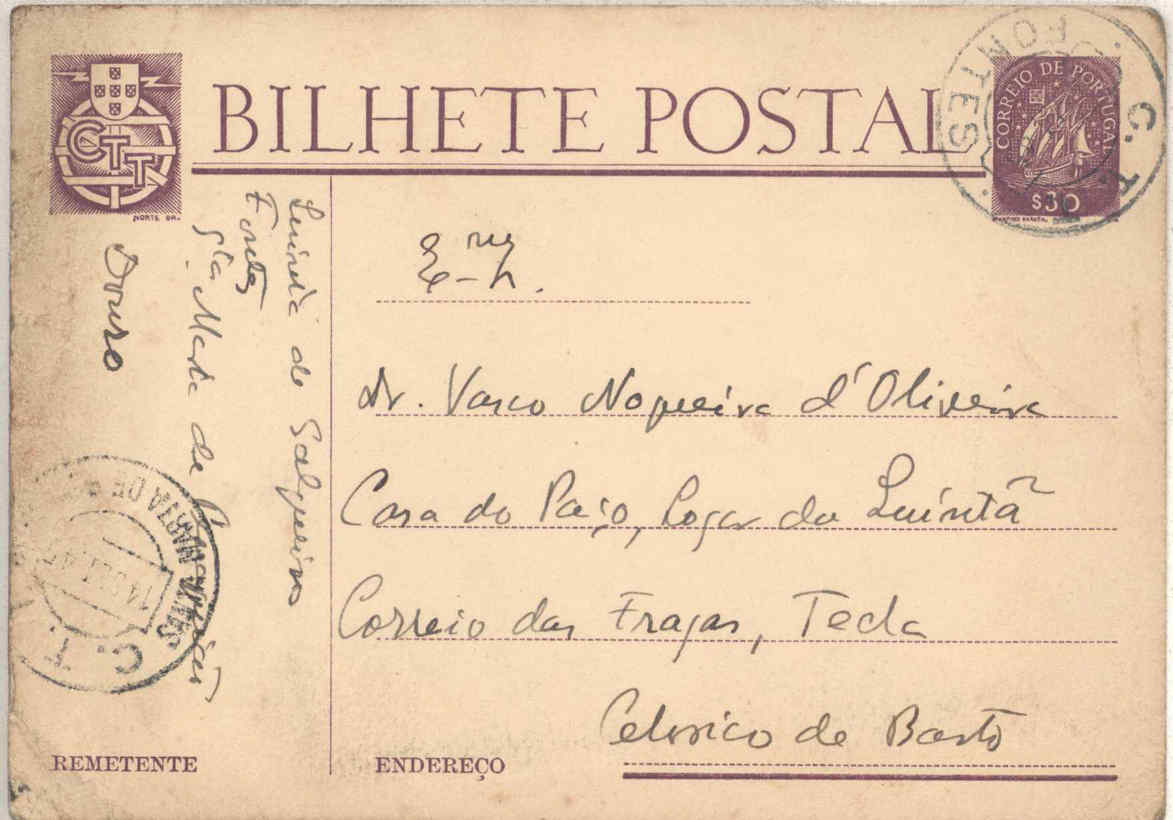 BILHETE POSTAL
CTT
NORTE GR.
CORREIO DE PORTUGAL
$30
C. T. T.
FONTES
Exmo. Sr.
Dr. Vasco Nogueira d'Oliveira
Casa do Paço, Logar da Quintã
Correio das Fragas, Tecla
Celorico de Basto
ENDEREÇO
Quinta do Salgueiro
Fontes
Sta Marta de
Douro
MARTA DE
C. T.
REMETENTE